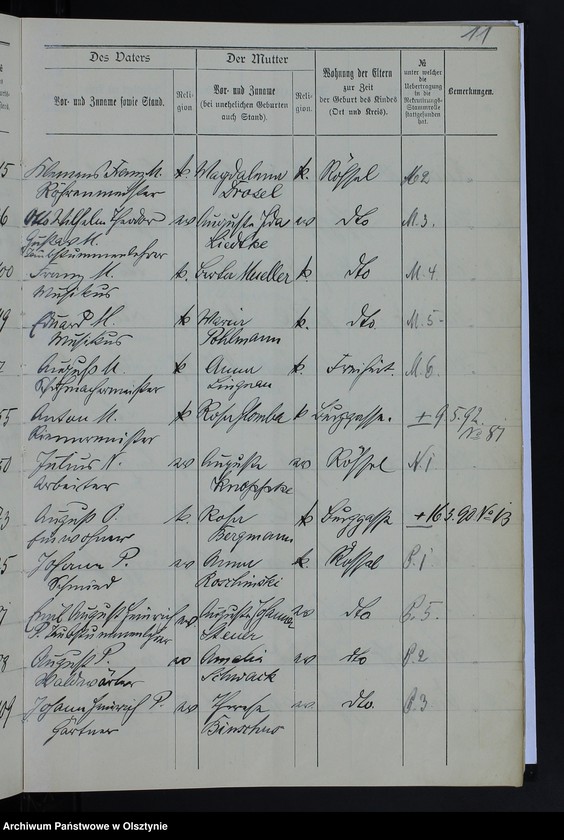 11
Des Vaters
Der Mutter
Vor- und Zuname sowie Stand.
Reli-
gion.
Vor- und Zuname
(bei unehelichen Geburten
auch Stand).
Reli-
gion.
Wohnung der Eltern
zur Zeit
der Geburt des Kindes
(Ort und Kreis).
№
unter welcher
die
Uebertragung
in die
Rekrutirungs-
Stammrolle
stattgefunden
hat.
Bemerkungen.
Franz M. k. Magdalena k. Rößel M 2
Drosel
Otto Wilhelm Theodor ev Auguste Ida ev dto M. 3.
Gustav M. Liedtke
Taubstummenlehrer
Franz M. k. Berta Mueller k. dto M. 4
Musikus
Eduard M. k Maria k. dto M. 5
Musikus Pohlmann
August M k Anna k. Freiheit. M. 6.
Schuhmachermeister
Anton M. k Rosa k Burggasse. + 9.5.92
Riemermeister № 81
Julius N. ev Auguste ev Rößel N. 1
Arbeiter
August O. k. Rosa k Burggasse + 16.5.90 No 13
Einwohner Bergmann
Johann P. ev Anna k Rössel P. 1
Schmied
Emil August Heinrich ev Auguste Johanna ev dto P. 5.
P. Taubstummenlehrer
August P. ev Amalie ev dto P. 2
Waldwärter Schwack
Johann Heinrich P. ev Therese ev. dto P. 3
Gärtner
Archiwum Państwowe w Olsztynie